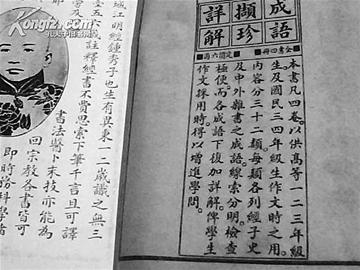 成語
擷珍
詳解
全書四冊
本書凡四卷。以供高等一二三年級
生及國民三四年級生作文時之用。
內容分三十二類。每類各列經子史
及中外雜書之成語。線索分明。檢查
極便。而各成語下復加詳解。俾學生
作文採用時。得以增進學問。
城江明經鍾秀子也生有異秉一二歲識之無三
五六歲註釋經書不費思索下筆千言且可譯
書法醫卜末技亦能為
回宗教各書皆可
即時務科學者
Kongfz.com